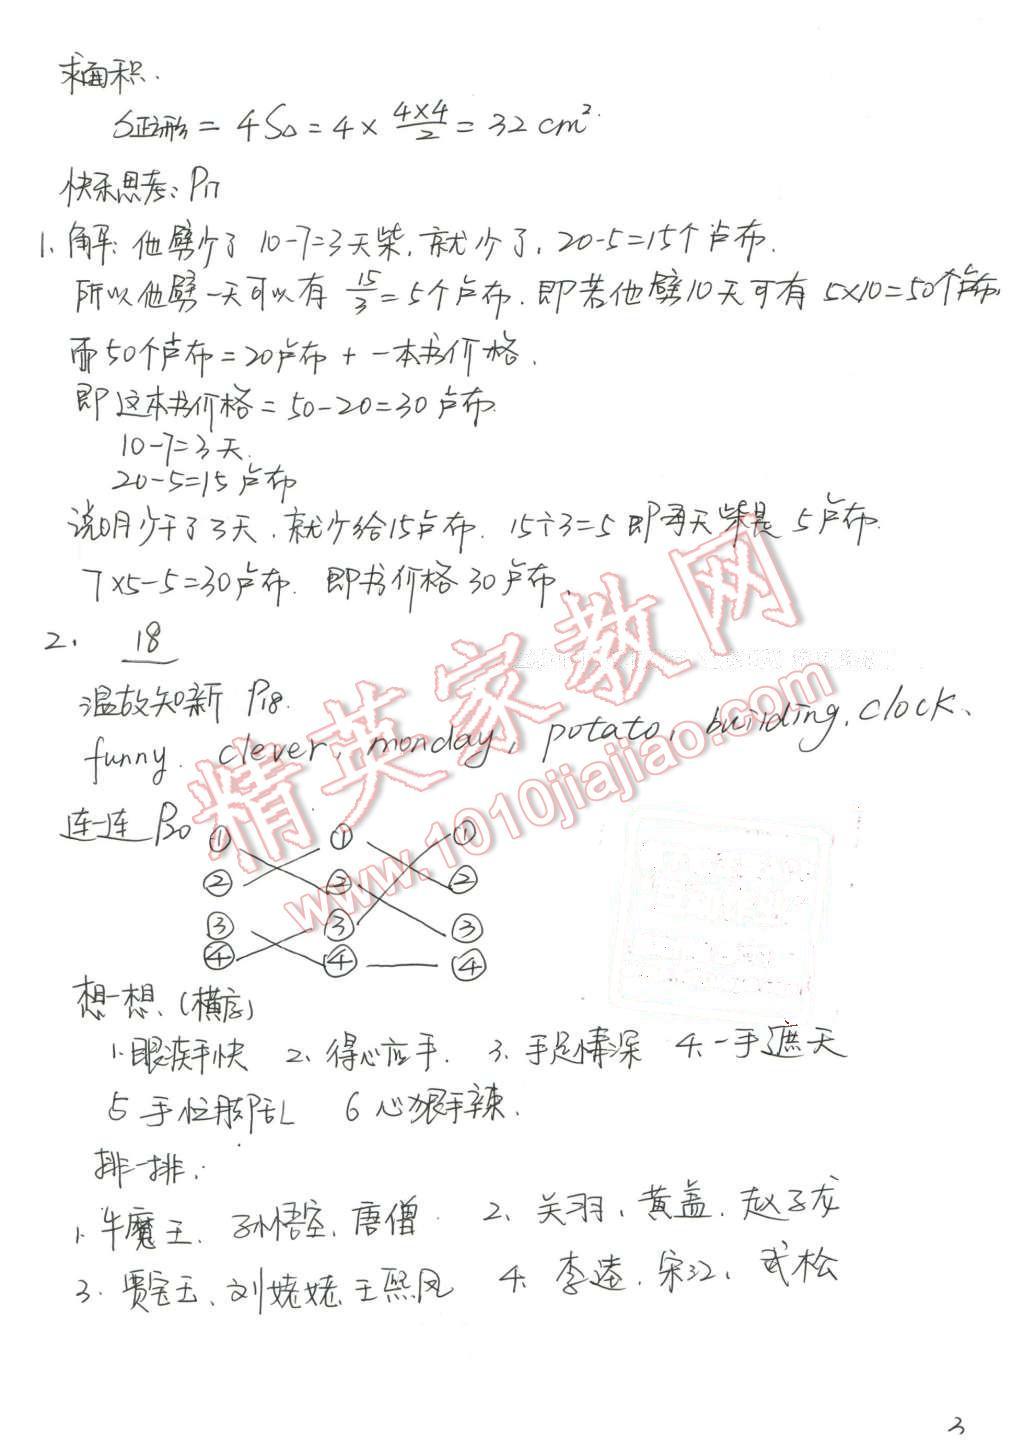 求面积.
S正方形 = 4S△ = 4 × 4×4/2 = 32 cm²
快乐思考: P17
1. 解: 他劈少了 10-7=3天柴, 就少了, 20-5=15个卢布.
所以他劈一天可以有 15/3 = 5个卢布. 即若他劈10天可有 5×10=50个卢布,
而50个卢布 = 20卢布 + 一本书价格.
即这本书价格 = 50-20=30卢布.
10-7=3天.
20-5=15卢布
说明少干了3天, 就少给15卢布. 15÷3=5 即每天柴是 5卢布.
7×5-5=30卢布. 即书价格30卢布.
2. 18
温故知新 P18.
funny. clever, monday, potato, building, clock、
连一连 P20
① ① ①
② ② ②
③ ③ ③
④ ④ ④
想一想、(横店)
1. 眼疾手快 2、得心应手. 3、手足情深 4、一手遮天
5 手忙脚乱 6 心狠手辣.
排一排:
1. 牛魔王、孙悟空、唐僧. 2、关羽、黄盖、赵子龙
3. 贾宝玉、刘姥姥、王熙凤 4、李逵、宋江、武松
3
精英家教网
www.1010jiajiao.com